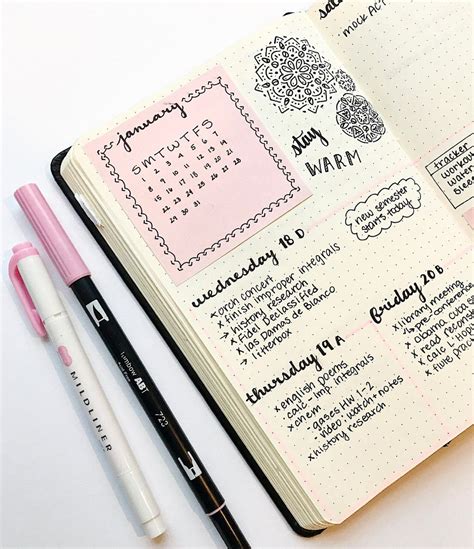 january
S M T W T F S
1 2 3 4 5 6 7
8 9 10 11 12 13 14
15 16 17 18 19 20 21
22 23 24 25 26 27 28
29 30 31
stay
WARM
mock ACT
tracker
new semester
starts today
wednesday 18 D
x orch concert
x finish improper integrals
→ history research
x fidel declassified
x las Damas de Blanco
x litterbox
thursday 19 A
x english poems
x calc - imp integrals
x chem
- gases HW 1-2
- video: watch + notes
x history research
friday 20 B
x library meeting
MILDLINER
Tombow ABT
723